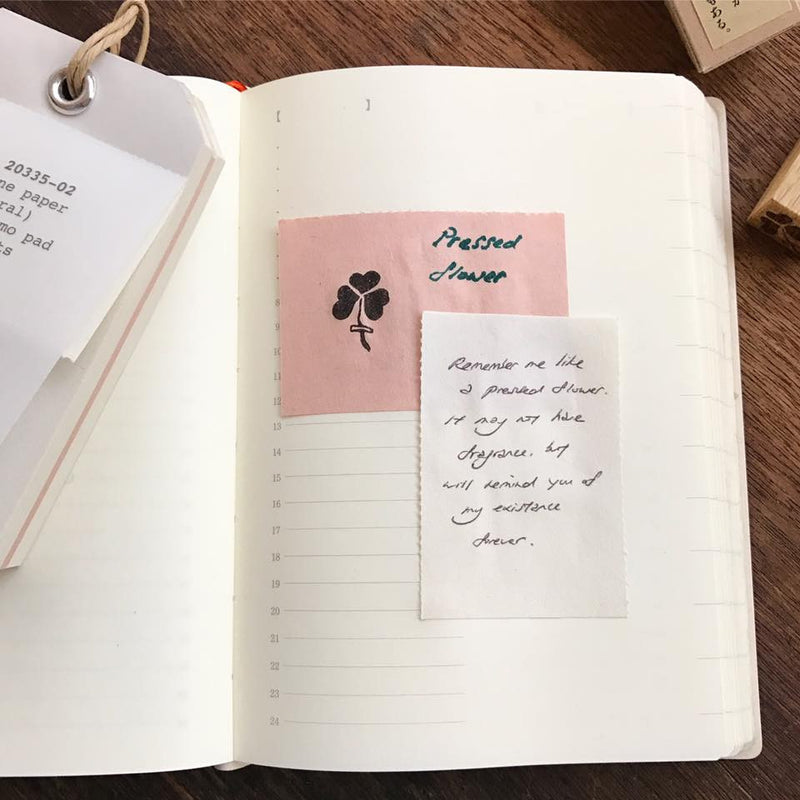 20335-02
ne paper
ral)
mo pad
ts
Pressed
flower
Remember me like
a pressed flower.
It may not have
fragrance. but
will remind you of
my existance
forever.
8
9
10
11
12
13
14
15
16
17
18
19
20
21
22
23
24